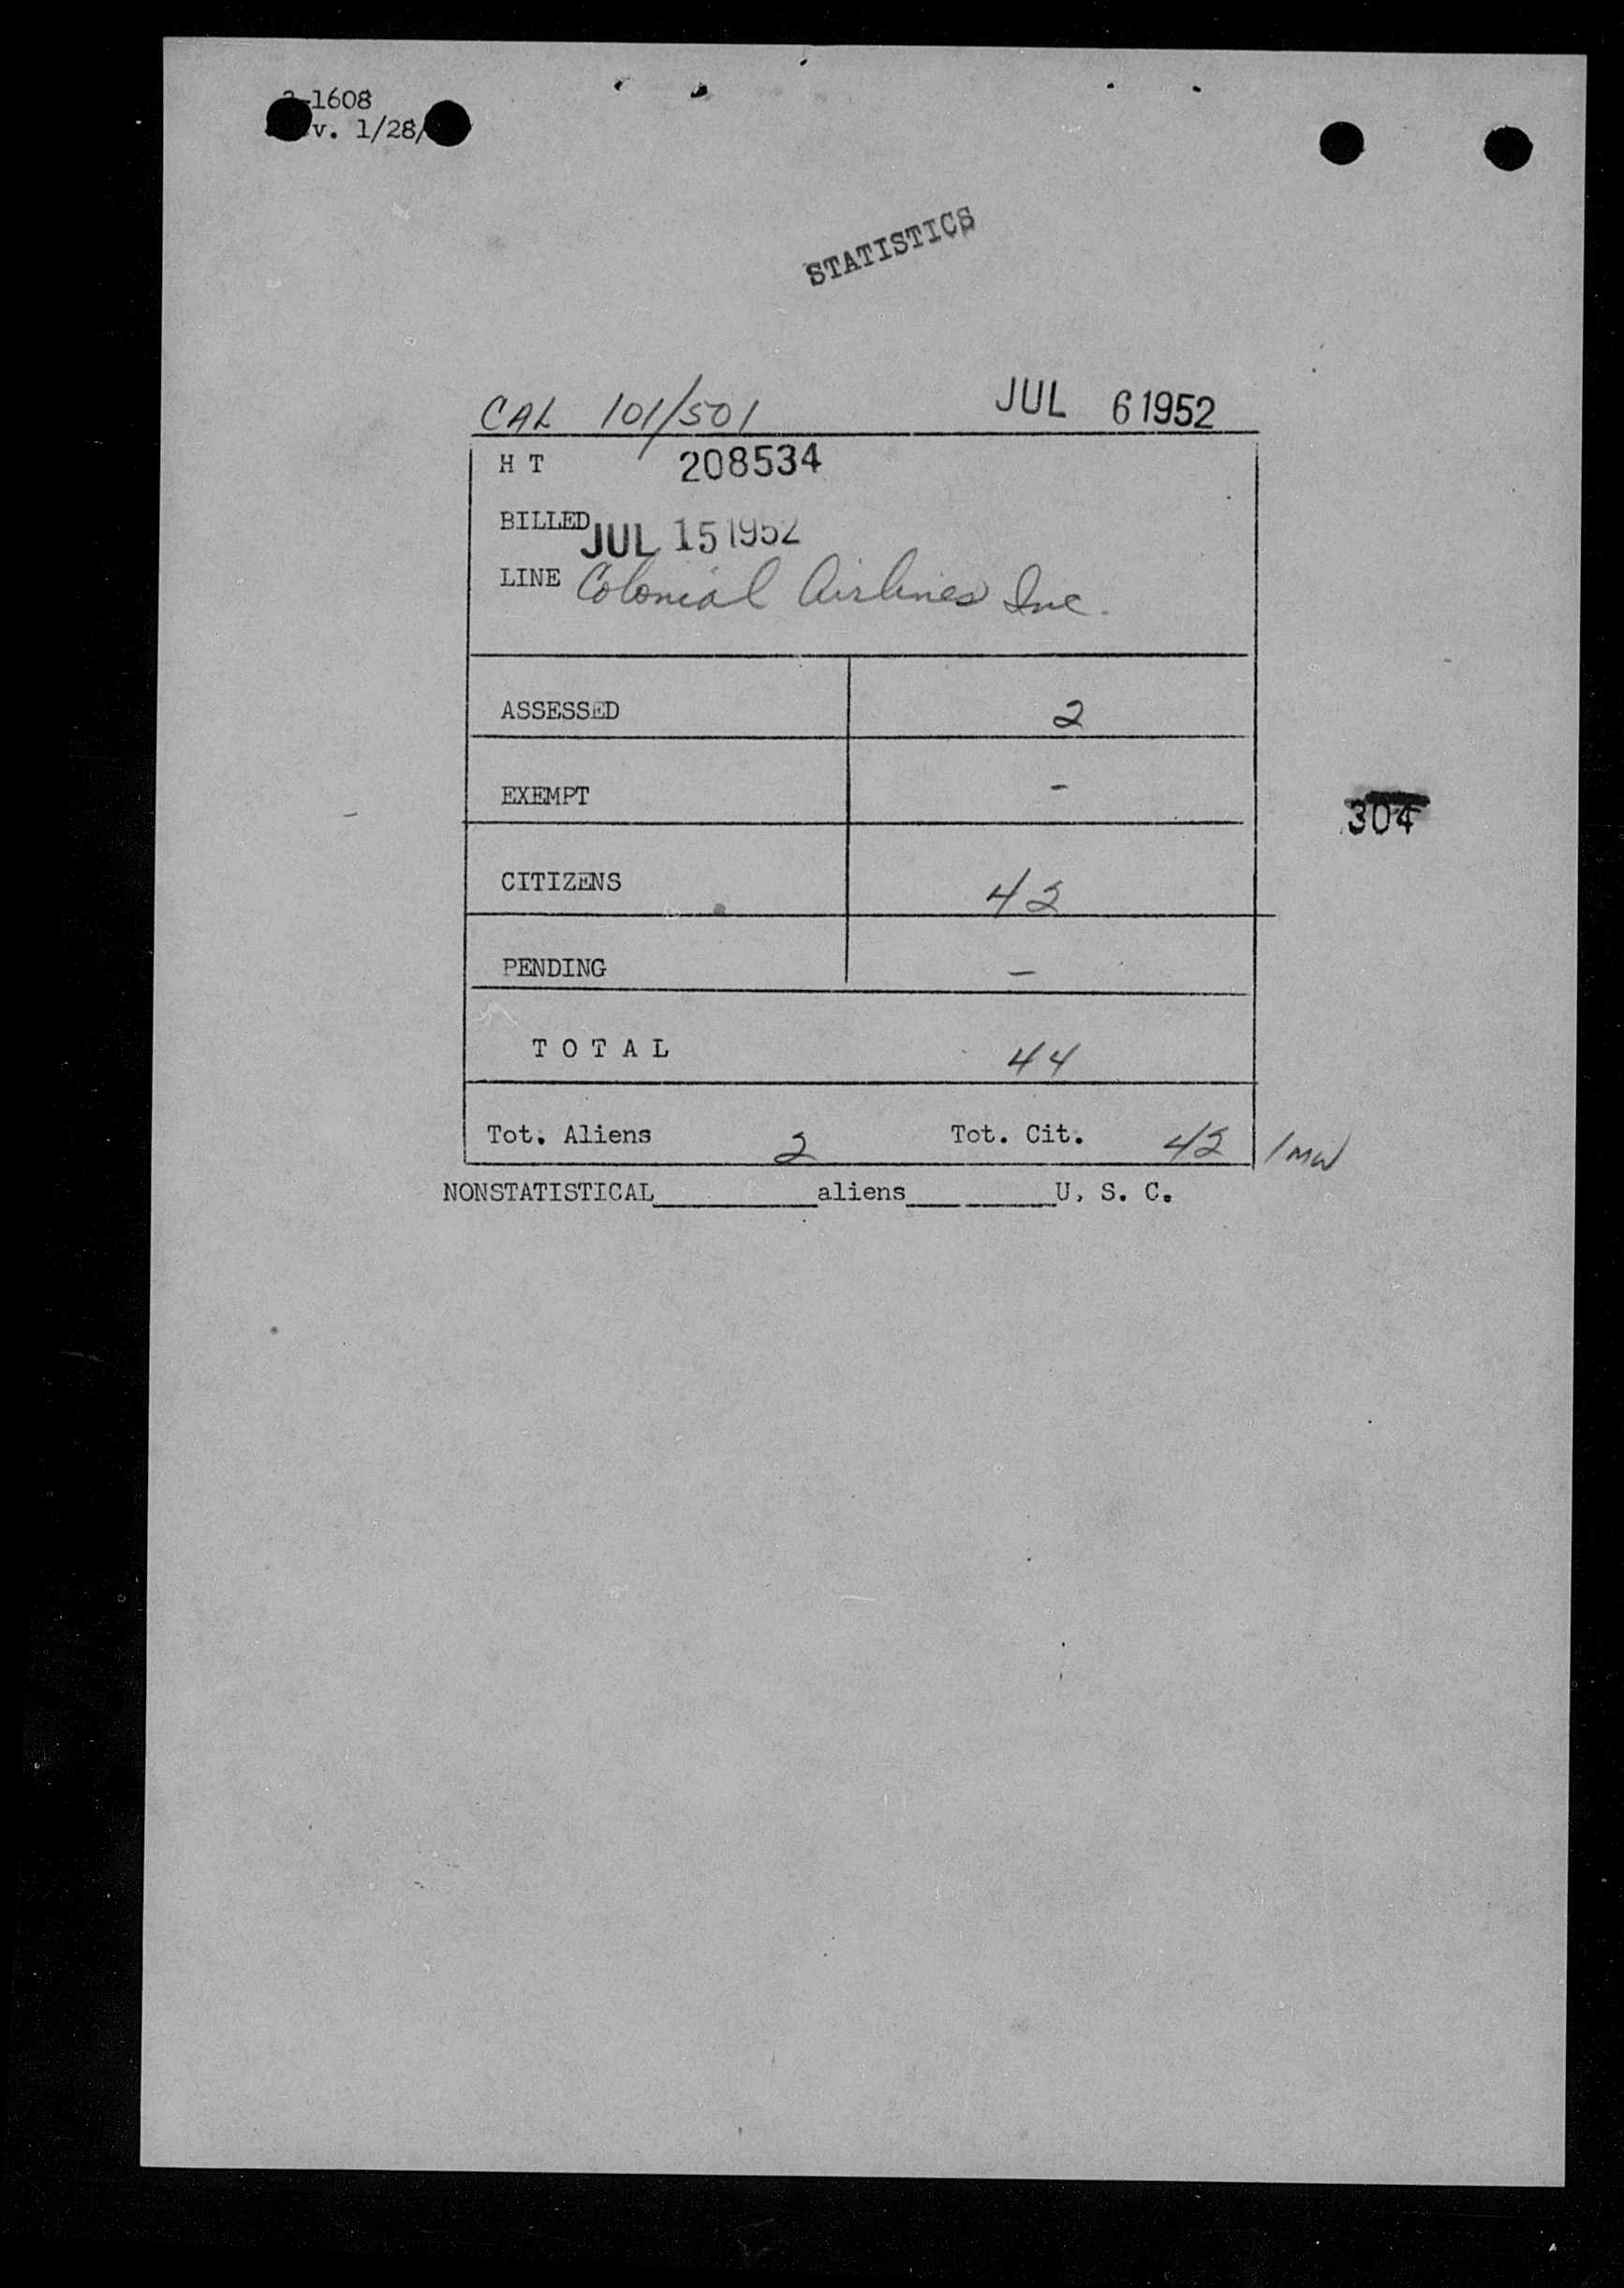 -1608
v. 1/28/
STATISTICS
CAL 101/501 JUL 6 1952
H T 208534
BILLED JUL 15 1952
LINE Colonial Airlines Inc.
ASSESSED 2
EXEMPT -
304
CITIZENS 42
PENDING -
T O T A L 44
Tot. Aliens 2 Tot. Cit. 42 /MW
NONSTATISTICAL__________aliens__________U. S. C.